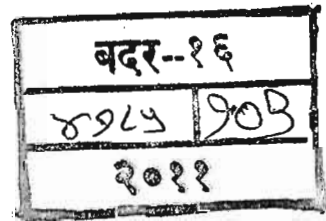 बदर--१६
४१८५ १०३
२०११